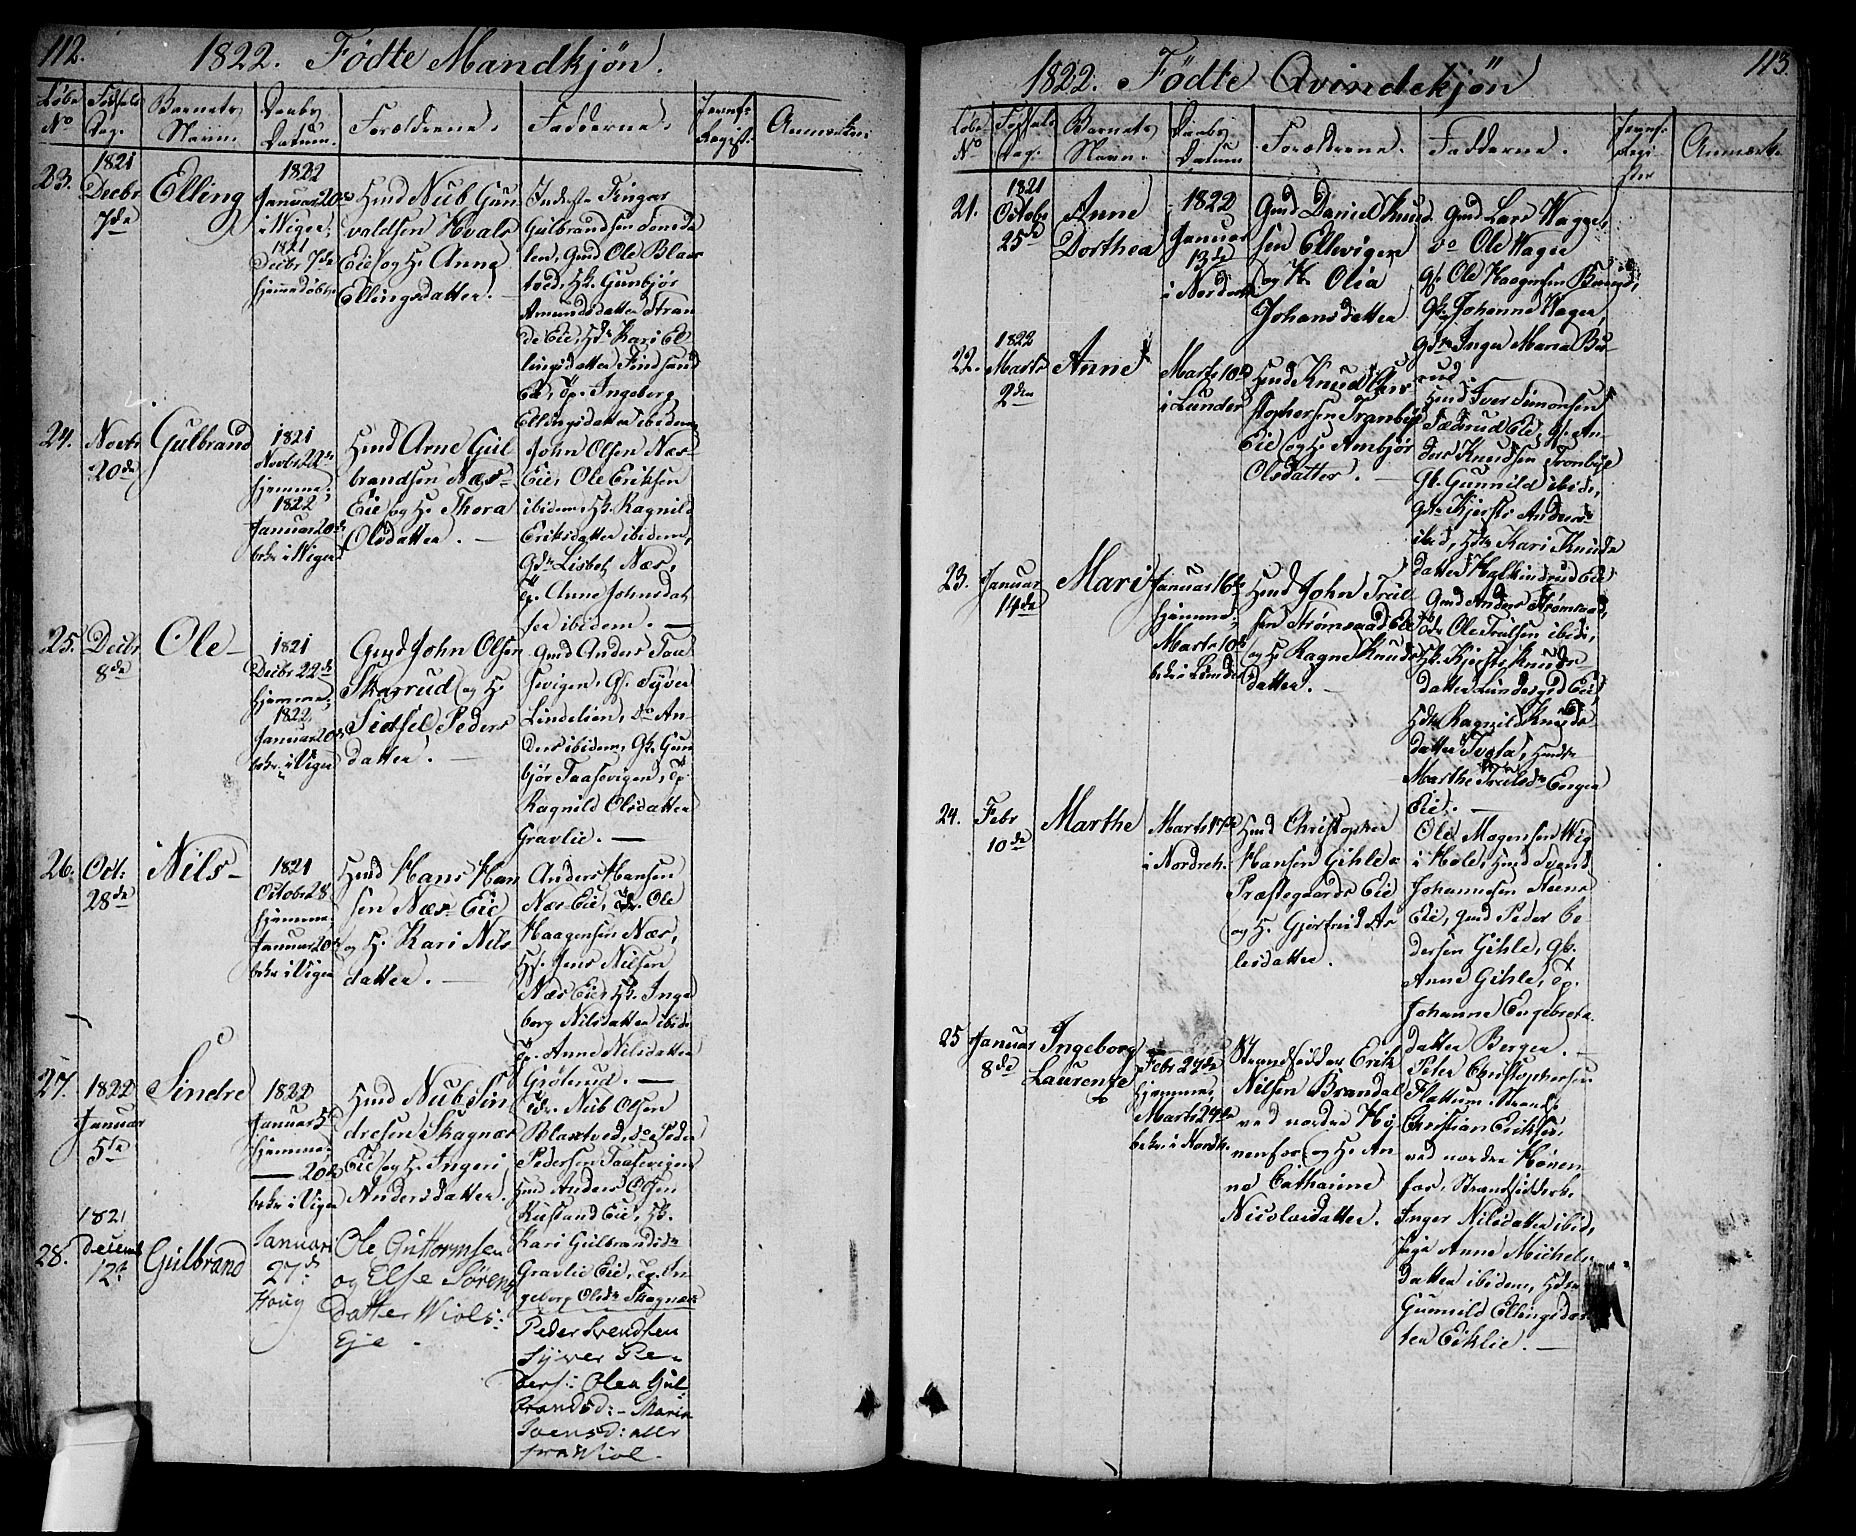 112.
1822. Fødte Mandkjøn.
Løbe No
Fødsels Dag.
Barnets Navn.
Daabs Datum.
Forældrene.
Fadderne.
Jevnf. Regist.
Anmærkn:
23.
1821
Decbr
7de
Elling
1822
Januar 20de
i Wiger,
1821
Decbr 7de
hjemmedøbt
Hmd Nub Gun
valdsen Hvals
Eie og H. Anne
Ellingsdatter.
Gulbrandsen
len, Gmd Ole Blax
tved, Hk. Gunbjør
Amundsdatter Stran
de Eie, Kari El
lingsdatter Findsand
Eie, Ingeborg
Ellingsdatter ibidem
24.
Novbr
20de
Gulbrand
1821
Novbr 22de
hjemme,
1822
Januar 20de
bekr i Wiger
Hmd Arne Gul
brandsen Næs
Eie og H. Thora
Olsdatter.
John Olsen Næs
Eie, Ole Eriksen
ibidem, Hk. Ragnild
Eriksdatter ibidem,
Lisbet Næs,
Anne Johnsdat
ter ibidem.
25.
Decbr
8de
Ole
1821
Decbr 22de
hjemme,
1822
Januar 20de
bekr i Viger
Gmd John Olsen
Skarrud og H.
Sidsel Peders
datter.
Gmd Anders Taa
sevigen, Syver
Lindelien, do An
ders ibidem, Gk. Gun
bjør Taasevigen,
Ragnild Olsdatter
Gravlie.
26.
Oct:
28de
Nils
1821
October 28
hjemme
Januar 20de
bekr i Viger
Hmd Hans Han
sen Næs Eie
og H. Kari Nils
datter.
Anders Hansen
Næs Eie, Ole
Haagensen Næs,
Jens Nilsen
Næs Eie, Hk. Inge
borg Nilsdatter ibid:
Anne Nilsdatter
Grøterud.
27.
1822
Januar
5te
Sindre
1822
Januar 5
hjemme
20de
bekr i Viger
Hmd Nub Sin
dresen Skagnæs
Eie og H. Ingeri
Andersdatter.
Nub Olsen
Blaxtved, do Peder
Pedersen Taasevigen
Hmd Anders Olsen
Eie, Hk.
Kari Gulbrandsdr
Gravlie Eie, In
geborg Olsdr Skagnæs
28.
1821
Decemb
12t
Gulbrand
Januar
27d
Houg
Ole Guttormsen
og Else Sørens
datter Wiols:
Eje.
Peder Svendsen
Syver Pe
ders: Olea Gul
brandsd: Maria
Svensd: alle
fra Wiol.
113.
1822. Fødte Qvindekjön
Løbe No
Fødsels Dag.
Barnets Navn.
Daabs Datum
Forældrene.
Fadderne.
Jevnf. Regi ster
Anmærk.
21.
1821
Octobr
25de
Anne
Dorthea
1822
Januar
13de
i Norderh
Gmd Daniel Knud
sen Ellevigen
og H. Olia
Johansdatter
Gmd Lars Wager
do Ole Wager
Ole Haagensen Burud,
Gk. Johanne Wager,
Inger Maria Bu
rud.
22.
1822
Marts
2den
Anne
Marts 10de
i Lunder
Hmd Knud Chri
stophersen Tranbye
Eie og H. Anbjør
Olsdatter.
Hmd Iver Simonsen
Eie, An
ders Knudsen Tronbye
Gk. Gunnild ibid,
Kjersti Anders
ibid, Kari Knuds
datter Halkinrud Eie
23.
Januar
14de
Mari
Januar 16de
hjemme,
Marts 10de
bekr i Lunder
Hmd John Truls
sen Strømsoad Eie
og H. Ragne Knuds
datter.
Gmd Anders Strømsoad,
Ole Trulsen ibid,
Hk. Kjersti Knuds
datter Lundesgd Eie,
Ragnild Knuds
datter
Marthe Trulsdr
Eie.
24.
Febr
10de
Marthe
Marts 17de
i Nordreh.
Hmd Christopher
Hansen Gihle
Præstegaards Eie
og H. Gjertrud As
lesdatter.
Ole Mogensen Wig
i Hole, Hmd Svend
Johannesen
Eie, Gmd Peder Pe
dersen Gihle, Gk.
Anne Gihle,
Johanne Engebrets
datter Berger.
25
Januar
8de
Ingeborg
Laurentze
Febr 27de
hjemme,
Marts 24de
bekr i Nordh.
Strandsidder Erik
Nilsen Brandal
ved nordre Hø
nenfos og H. An
ne Cathrine
Nicolasdatter.
Peter Christophersen
Flattum, Strands
Christian Eriksen,
ved nordre Hønen
fos, Strandsidderk.
Inger Nilsdatter ibid,
Anne Michels
datter ibidem,
Gunnild Ellingsdat
ter Eiklie.